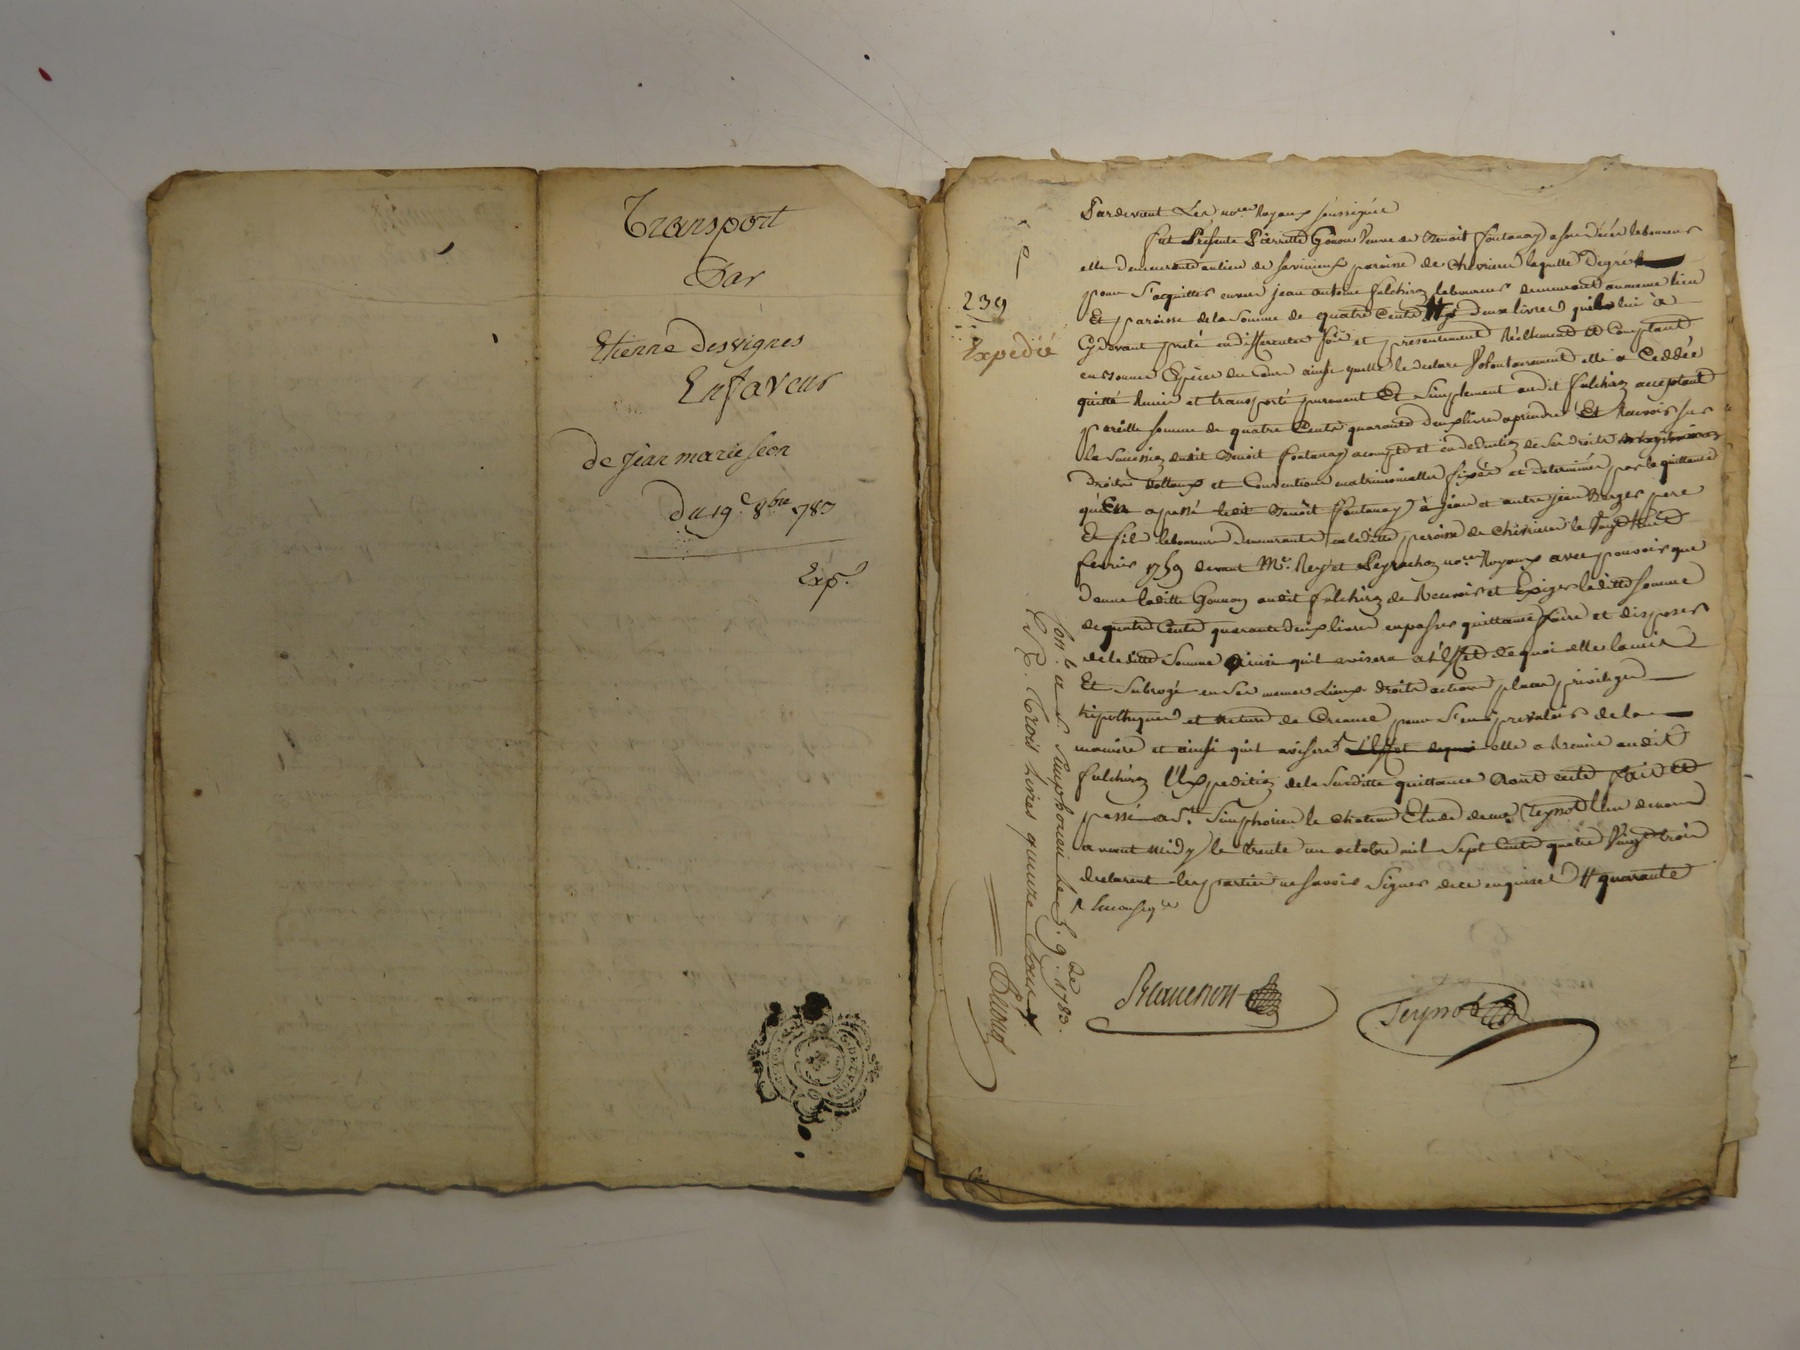 Transport
Par
Etienne Desvignes
En faveur
de jean marie seon
du 19e 8bre 783
Exp.
239
Expedié
Pardevant Les nores Royaux soussignés
fut Presente Pierrette Gonon Veuve de Benoit fontanay a son décès laboureur
elle demeurante au lieu de savinieux paroisse de Chevrieres laquelle Degré
pour s'acquitter envers jean antoine fulchiron laboureur demeurant au meme lieu
Et paroisse de la somme de quatre Cents # deux livres qu'il lui à
Cydevant preté en differentes fois et presentement Réellement et Comptant
en bonnes Espèces du Cours ainsy quelle le declare Volontairement elle a Ceddée
quitté Remis et transporté purement Et simplement audit fulchiron acceptant
pareille somme de quatre Cents quarante deux livres aprendre Et Recevoir sur
la succession dudit Benoit fontanay acompte et en deduction de ses droits
droits dottaux et Conventions matrimonialles fixés et determinés par la quittance
qu'En a passé ledit Benoit fontanay à Jean et autre jean Berger pere
Et fils laboureurs demeurants en laditte paroisse de chevrieres le Vingt huit
fevrier 1759 devant Me. Rey et Peyrachon nores Royaux avec pouvoir que
Donne laditte Gonnon audit fulchiron de Recevoir et Exiger laditte somme
de quatre Cents quarante deux livres en passer quittance faire et disposer
de laditte somme Ainsi quil avisera a l'Effet de quoi elle la mis
Et subrogé en ses memes Lieux droits actions places privileges
hipotheques et nature de Creance pour s'en prevaloir de la
maniere et ainsi quil avisera l'Effet dequoi elle a Remis audit
fulchiron l'Expedition de la susditte quittance Dont acte fait et
passé a St. Simphorien le chateau Etude de me Teynod l'un de nous
avant midy le trente un octobre mil sept Cents quatre Vingt trois
declarent les parties ne savoir signer de ce enquises # quarante
Ravenon
Teynod
Con.lé a S. Simphorien le 5. 9bre 1783.
R. Trois Livres quinze sous